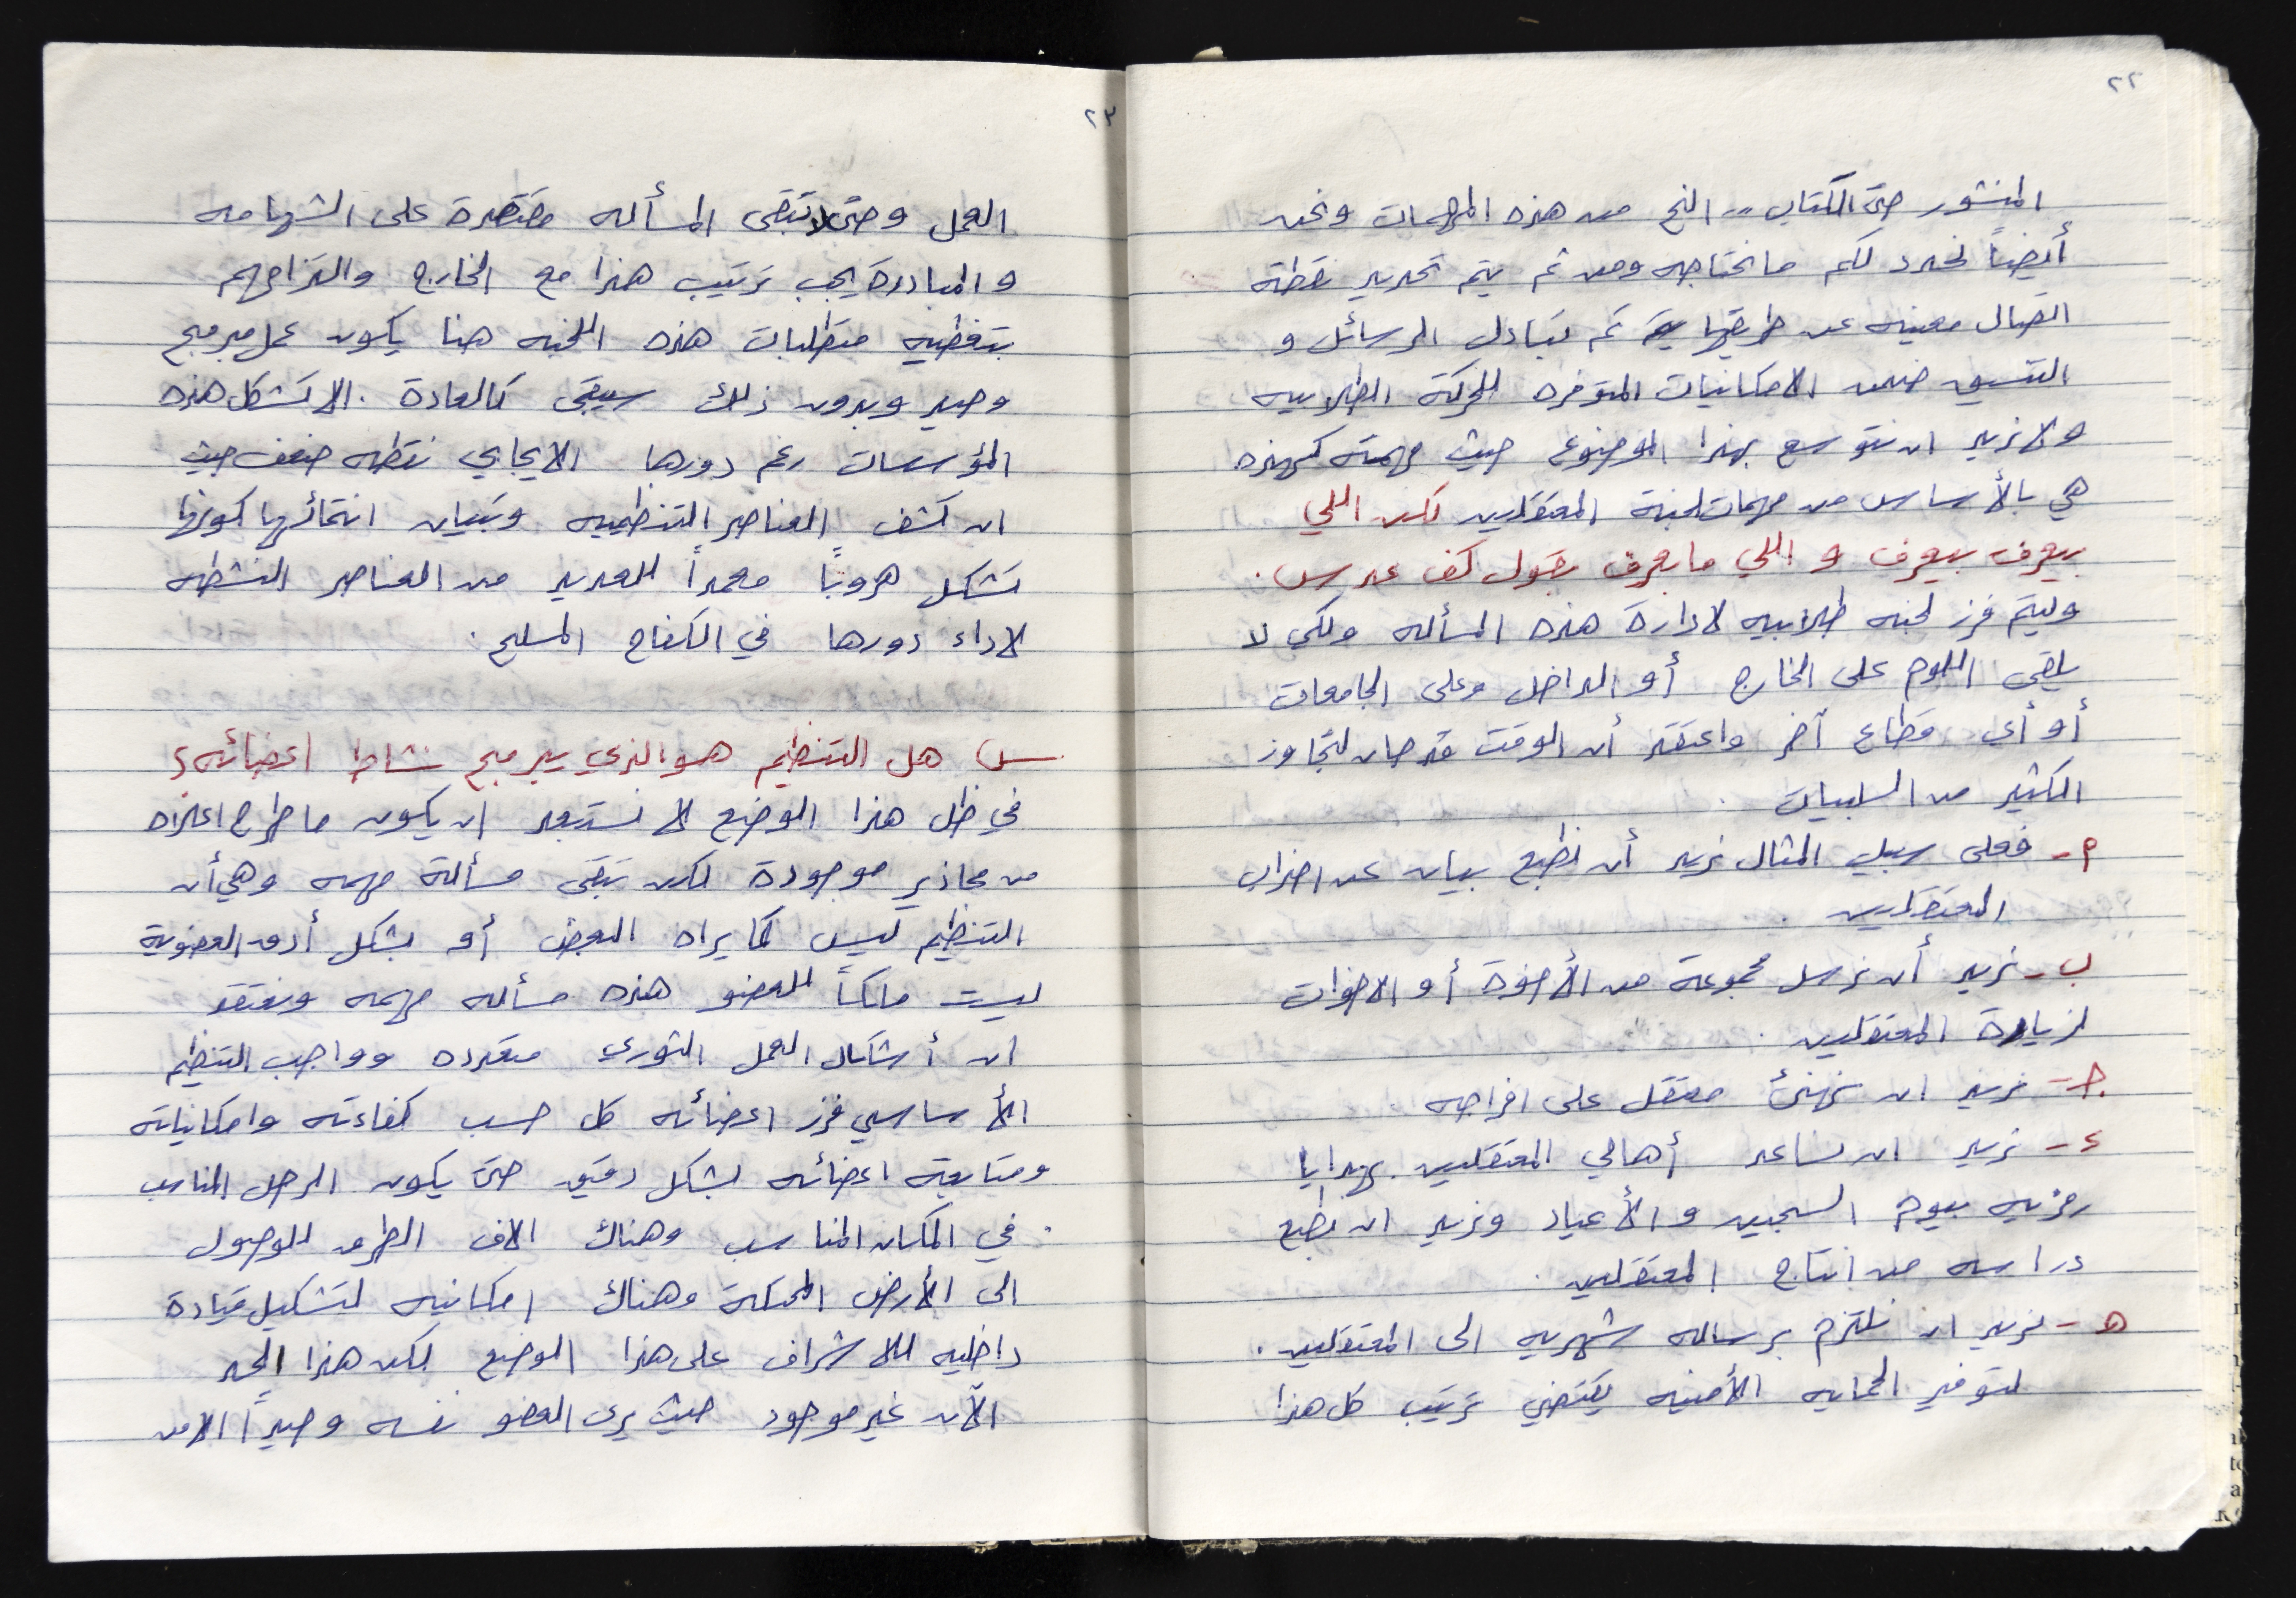 ٢٢
المنشور حتى الكتاب .. الخ من هذه المهمات ونحن
أيضاً نحدد لكم ما نحتاجه ومن ثم يتم تحديد نقطة
اتصال معينه عن طريقها يتم تبادل الرسائل و
التنسيق ضمن الامكانيات المتوفره للحركة الطلابيه
ولا نريد ان نتوسع بهذا الموضوع حيث مهمة كهذه
هي بالأساس من مهمات لجنة المعتقلين لكن اللي
بيعرف بيعرف و اللي ما بعرف بقول كف عدس .
وليتم فرز لجنه طلابيه لادارة هذه المسأله ولكي لا
يلقى اللوم على الخارج أو الداخل وعلى الجامعات
أو أي قطاع آخر واعتقد أن الوقت قد حان لتجاوز
الكثير من السلبيات .
م - فعلى سبيل المثال نريد أن نطبع بيان عن اضراب
المعتقلين .
ب - نريد أن نرسل مجموعة من الأخوة أو الاخوات
لزيارة المعتقلين .
جـ - نريد ان نهنئ معتقل على افراجه .
د - نريد ان نساعد أهالي المعتقلين بهدايا
رمزيه بيوم السجين والأعياد ونريد ان نطبع
دراسه من انتاج المعتقلين .
هـ - نريد ان نلتزم برساله شهريه الى المعتقلين .
لتوفير الحمايه الأمنيه يقتضي ترتيب كل هذا
٢٣
العمل وحتى لا تبقى المسأله مقتصرة على الشهامه
والمبادرة يجب ترتيب هذا مع الخارج والتزامهم
بتغطيه متطلبات هذه اللجنه هنا يكون عمل مبرمج
وجيد وبدون ذلك سيبقى كالعادة . الا تشكل هذه
المؤسسات رغم دورها الايجابي نقطه ضعف حيث
ان كشف العناصر التنظيميه وتبيان انتمائها كونها
تشكل هروباً معمداً للعديد من العناصر النشطه
لاداء دورها في الكفاح المسلح .
س هل التنظيم هو الذي يبرمج نشاط اعضائه؟
في ظل هذا الوضع لا نستبعد ان يكون ما طرح اعلاه
من محاذير موجودة لكن تبقى مسألة مهمه وهي أن
التنظيم ليس كما يراه البعض أو بشكل أدق العضوية
ليست ملكاً للعضو هذه مسأله مهمه ونعتقد
ان أشكال العمل الثوري متعدده وواجب التنظيم
الأساسي فرز اعضائه كل حسب كفاءته وامكانياته
ومتابعة اعضائه بشكل دقيق حتى يكون الرجل المناسب
في المكان المناسب وهناك الاف الطرق للوصول
الى الأرض المحتلة وهناك امكانيه لتشكيل قيادة
داخليه للاشراف على هذا الوضع لكن هذا الحد
الآن غير موجود حيث يرى العضو نفسه وحيداً الا من